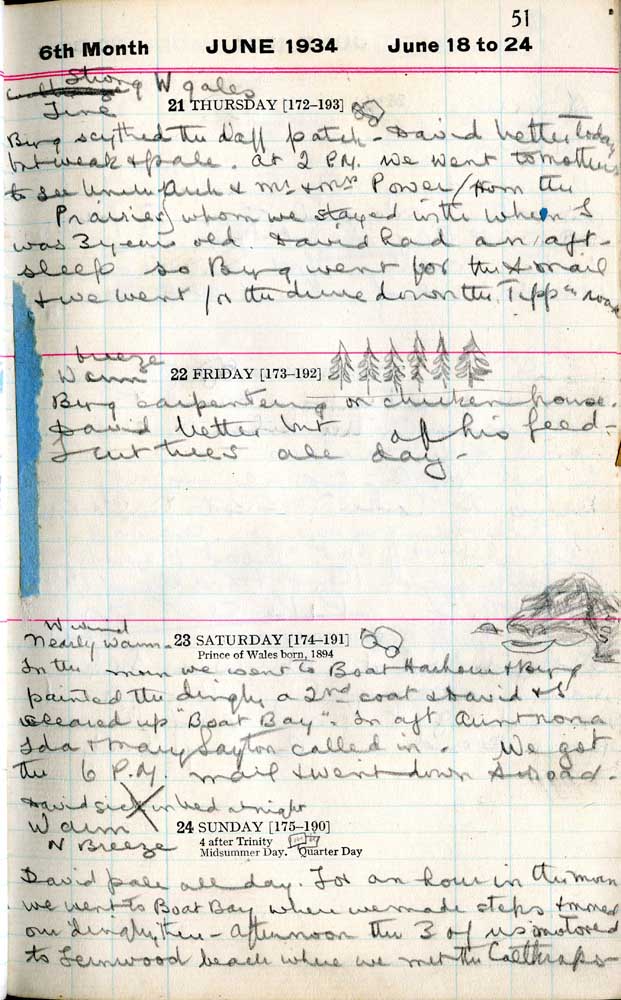 51
6th Month JUNE 1934 June 18 to 24
Strong W gales
Fine
21 THURSDAY [172–193]
Byng scythed the daff patch - David better today
but weak & pale. At 2 P.M. we went to mothers
to see & Mr & Mrs Power (from the
Prairies) whom we stayed with when I
was 3 years old. David had an aft-
sleep so Byng went for the mail
& we went for the down the road
breeze
Warm
22 FRIDAY [173–192]
Byng carpentering on chicken house.
David better but off his feed-
I cut trees all day-
W wind
Nearly warm-
23 SATURDAY [174–191]
Prince of Wales born, 1894
In the morn we went to Boat Harbour & Byng
painted the dinghy a 2nd coat & David & I
cleared up "Boat Bay". In aft Aunt Nona
Ida & Mary Layton called in. We got
the 6 P.M. mail & went down road.
David sick in bed at night
Warm
N Breeze
24 SUNDAY [175–190]
4 after Trinity
Midsummer Day. Quarter Day
David pale all day. For an hour in the morn
we went to Boat Bay where we made steps &
our dinghy there - Afternoon the 3 of us motored
to Fernwood beach where we met the